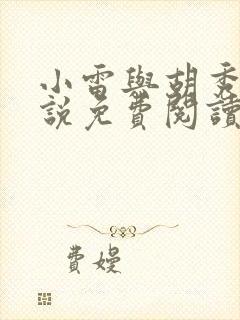 小雷與胡秀
說免費閱讀
費嫚